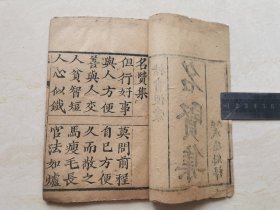 名賢集
名賢集
但行好事　莫問前程
與人方便　自己方便
善與人交　久而敬之
人貧智短　馬瘦毛長
人心似鐵　官法如爐